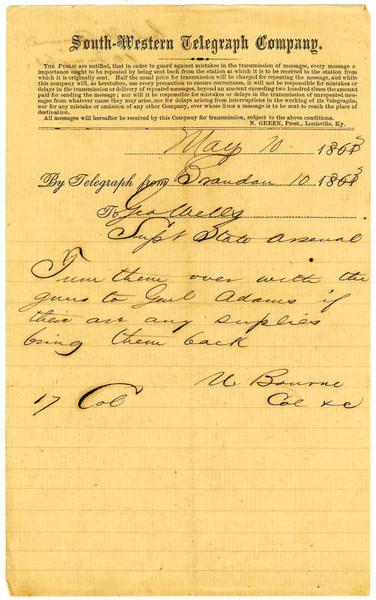 South-Western Telegraph Company.
THE PUBLIC are notified, that in order to guard against mistakes in the transmission of messages, every message of
importance ought to be repeated by being sent back from the station at which it is to be received to the station from
which it is originally sent. Half the usual price for transmission will be charged for repeating the message, and while
this company will, as heretofore, use every precaution to ensure correctness, it will not be responsible for mistakes or
delays in the transmission or delivery of repeated messages, beyond an amount exceeding two hundred times the amount
paid for sending the message; nor will it be responsible for mistakes or delays in the transmission of unrepeated mes-
sages from whatever cause they may arise, nor for delays arising from interruptions in the working of its Telegraphs,
nor for any mistake or omission of any other Company, over whose lines a message is to be sent to reach the place of
destination.
All messages will hereafter be received by this Company for transmission, subject to the above conditions.
N. GREEN, Prest., Louisville, Ky.
May 10 1863
By Telegraph from Brandon 10 1863
To Geo Wells
Supt State Arsenal
Turn them over with the
guns to Genl Adams if
their are any supplies
bring them back
U Bourne
17 Col Col &c